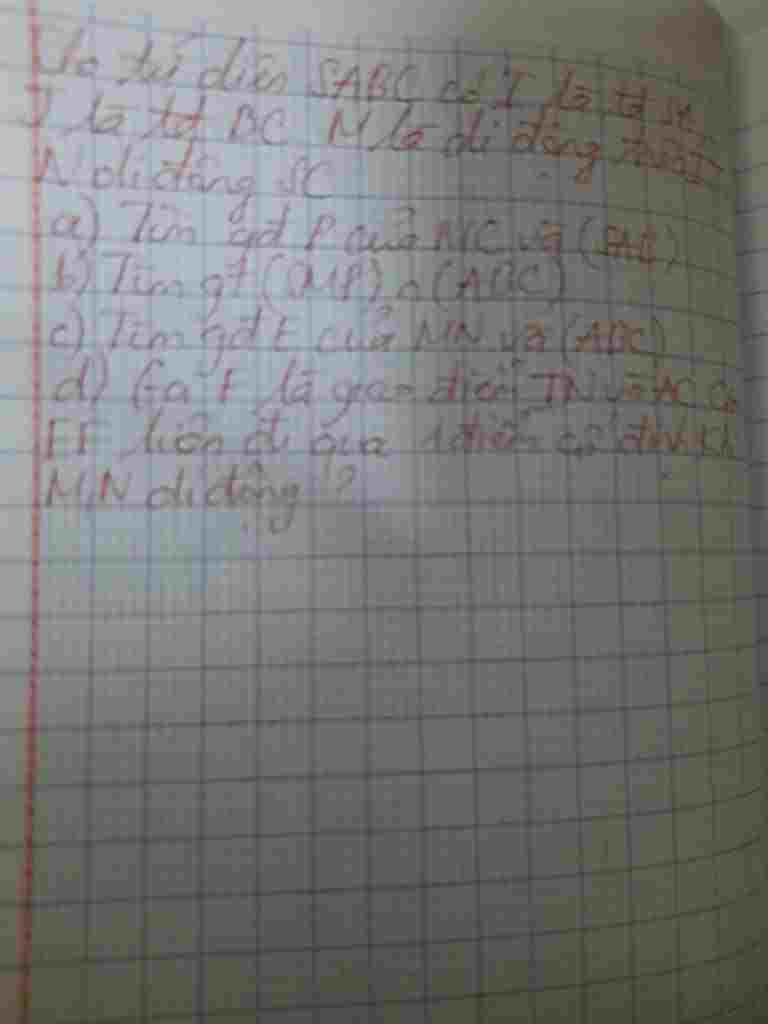 tứ diện SABC có I là tđ SA
J là tđ BC M là di động trên
N di động SC
a) Tìm gđ P của MC và
b) Tìm gt (SMP) ∩ (ABC)
c) Tìm gđ E của MN và (ABC)
d) F là giao điểm IN và AC
EF luôn đi qua 1 điểm cố định
M, N di động ?